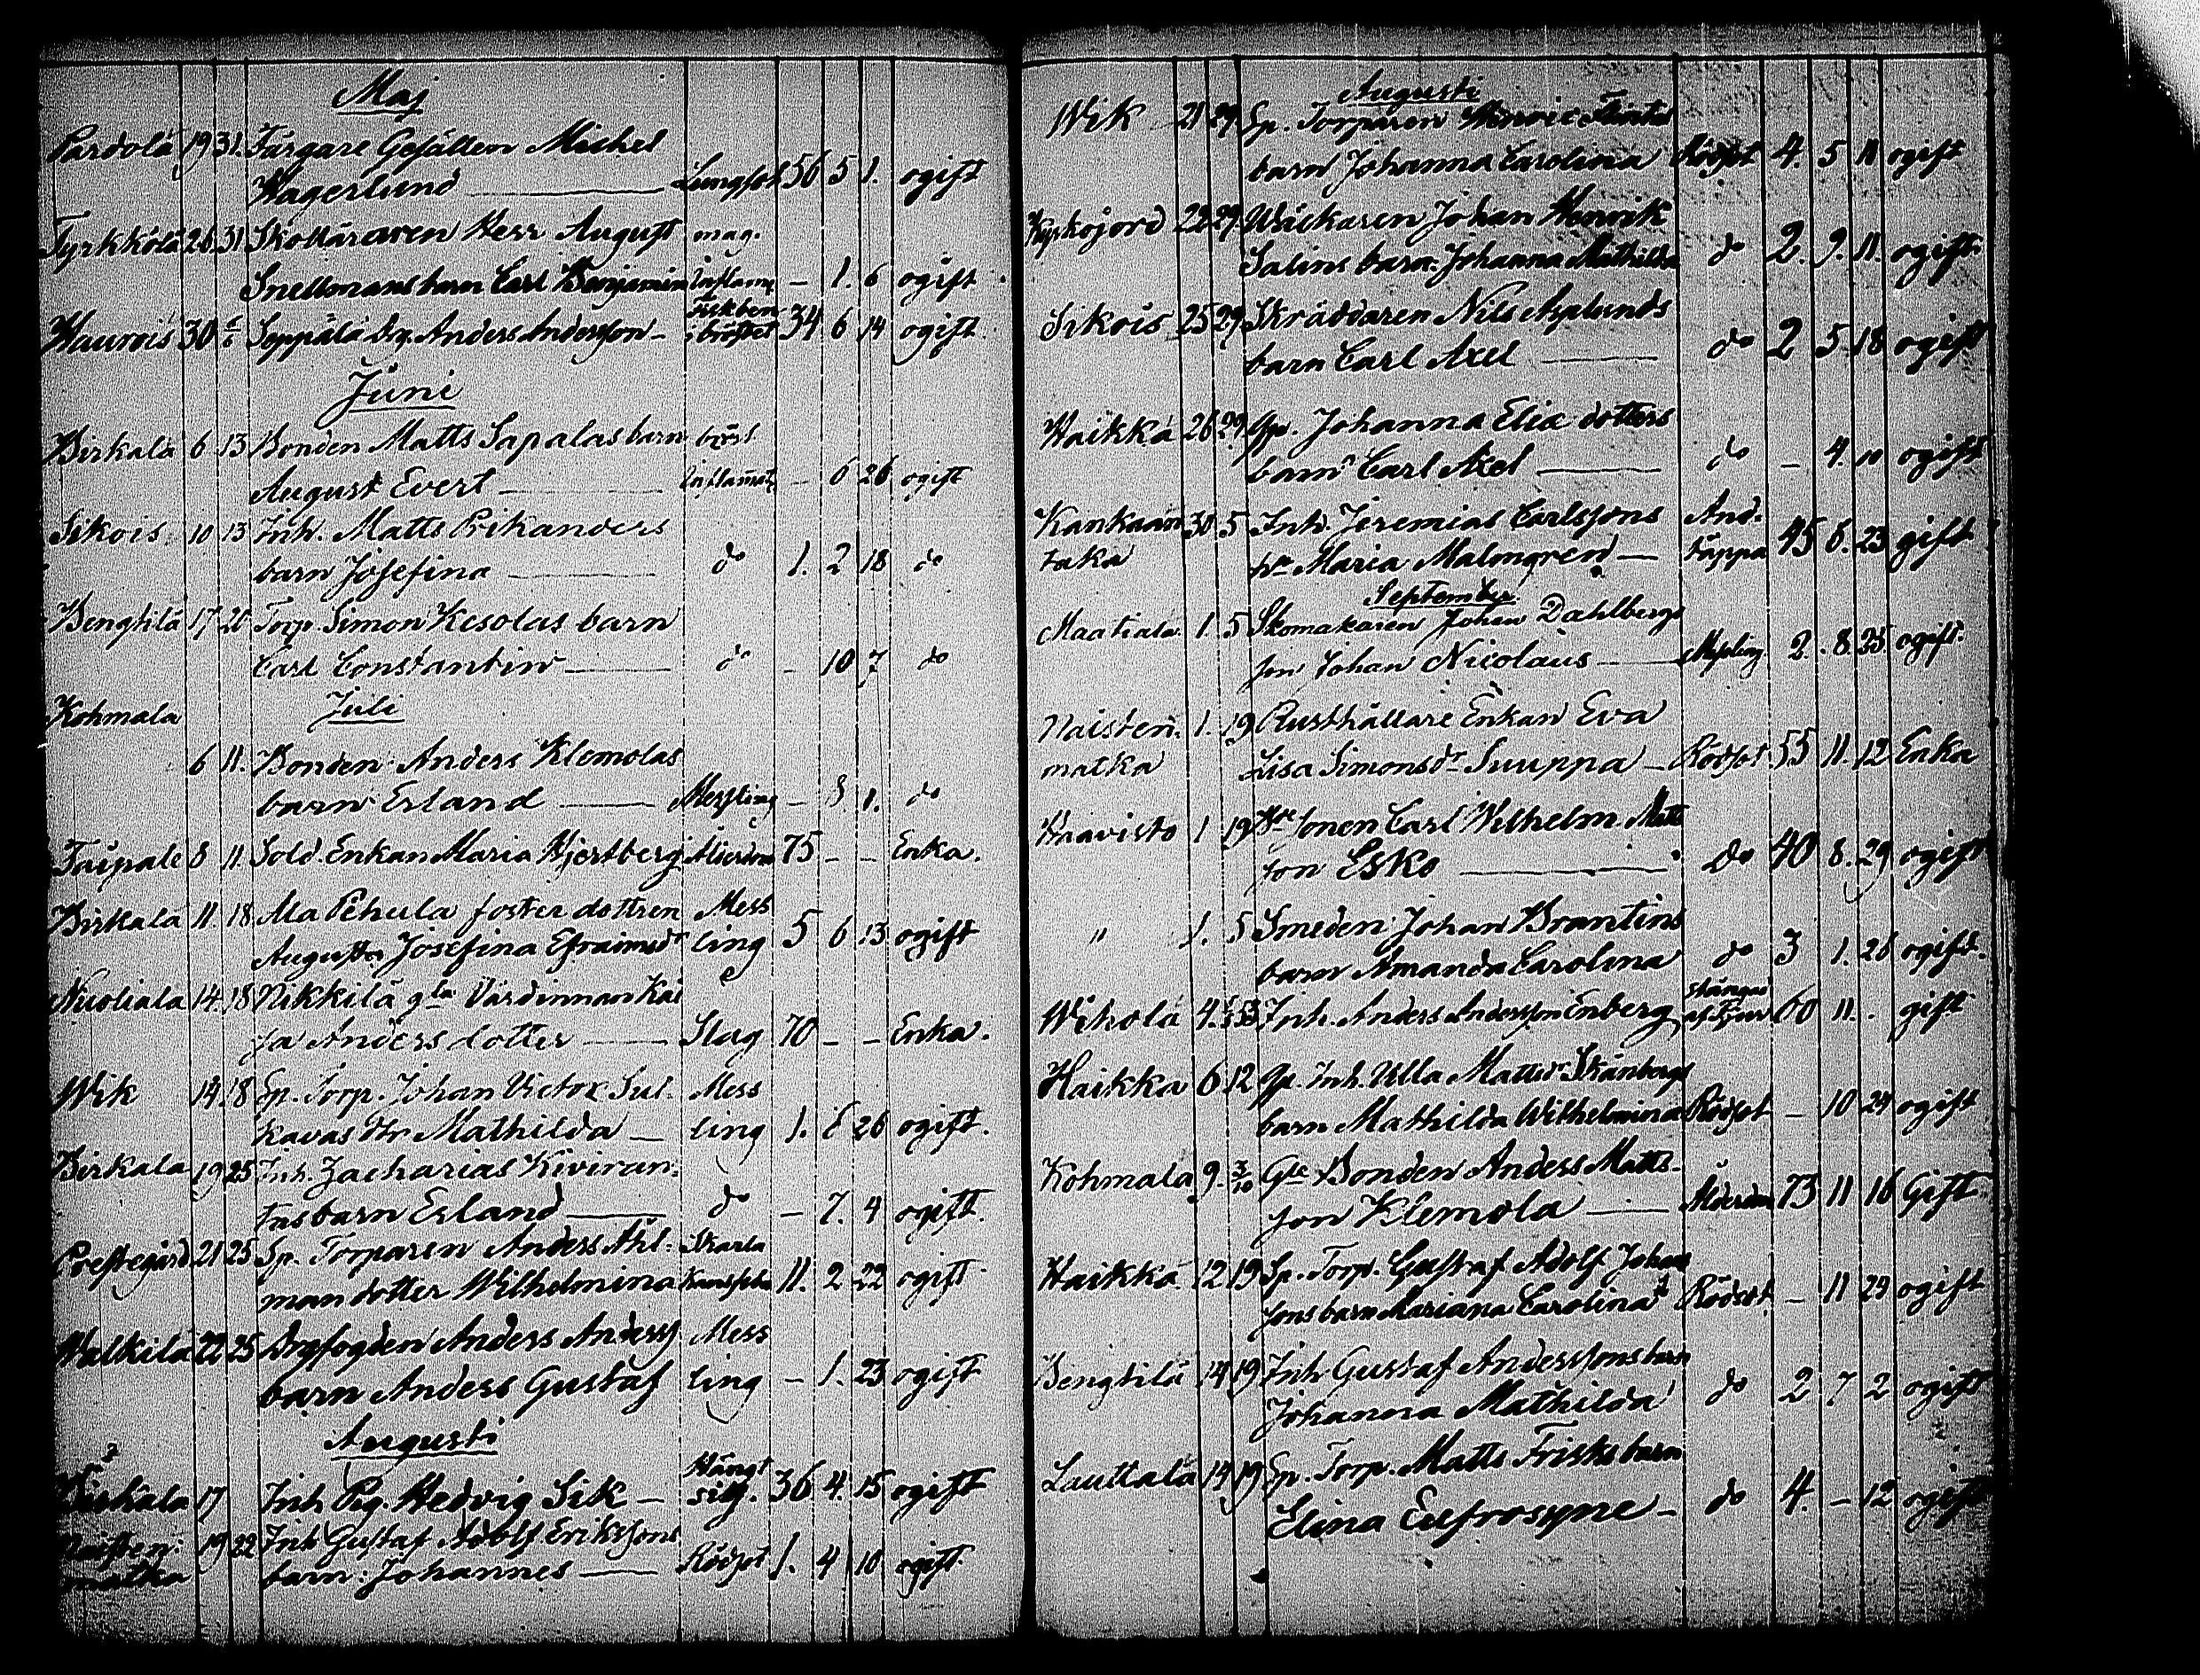 Maj
Pardola 19 31. Färgare Gesällen Michel
Hagerlund — Lungsot 56 5 1. ogift
Tyrkkölä 26 31 Herr August mag.
Snellmans barn Carl Benjamin Inflamm — 1. 6 ogift
30 Seppälä Drg. Anders Andersson — 34 6 14 ogift
i bröstet
Juni
Birkala 6 13 Bonden Matts Sapalas barn bröst
August Evert — Inflamat — 6 26 ogift
Sikois 10 13 Inh. Matts Prikanders
barn Josefina — do 1. 2 18 do
Bengtilä 17 20 Torp. Simon Kesolas barn
Carl Constantin — do — 10 7 do
Juli
Kohmala
6 11. Bonden Anders Klemolas
barn Erland — Messling — 8 1. do
Taipale 8 11. Sold. Enkan Maria Hjertberg Ålderdom 75 — — Enka.
Birkala 11. 18. Ala Pehula foster dottren Mess
Augusta Josefina Efraimsdr ling 5 6 13 ogift
Nuoliala 14. 18 Nikkilä gla Värdinnan Kai
sa Anders dotter — Slag 70 — — Enka.
Wik 14. 18 Sp. Torp. Johan Victor Sul- Mess
kavas dr Mathilda — ling 1. 8 26 ogift.
Birkala 19 25 Inh. Zacharias Kiviran-
tas barn Erland — do — 7. 4 ogift.
Prestegård 21 25 Sp. Torparen Anders Ahl- Skarla
man dotter Wilhelmina 11. 2 22 ogift
Walkila 22 25 Drgfogden Anders Anderss Mess
barn Anders Gustaf ling — 1. 23 ogift
Augusti
17 Inh. Pig. Hedvig Sik — Hängt sig. 36 4. 15 ogift
Naisten- 19 22 Inh Gustaf Adolf Erikssons
matka barn Johannes — Rödsot 1. 4 10 ogift
Augusti
Wik 21 29 Sp. Torparen Henric
barn Johanna Carolina Rödsot 4. 5 11 ogift
Kyrkojord 22 29 Wäckaren Johan Henrik
Salins barn Johanna Mathilda do 2. 9. 11. ogift.
Sikois 25 29 Skräddaren Nils Asplunds
barn Carl Axel — do 2 5 18 ogift
Haikka 26 29 Qp. Johanna Elia dotters
barn Carl Axel — do — 4. 10 ogift
Kankaan 30. 5 Inh. Jeremias Carlssons And-
taka hu Maria Malmgren — täppa 45 6. 23 gift
September
Maatiala. 1. 5 Skomakaren Johan Dahlbergs
son Johan Nicolaus — Messling 2. 8. 25 ogift.
Naisten- 1. 19 Rusthållare Enkan Eva
matka Lisa Simonsdr Suuppa — Rödsot. 55 11. 12 Enka
Haavisto 1 19 Bdesonen Carl Wilhelm Matts
son Esko — do 40 8. 29 ogift
" 1. 5 Smeden Johan Brantins
barn Amanda Carolina do 3 1. 28 ogift.
Wihola 4. Inh. Anders Andersson Enberg stångad af Tjur 60 11. . gift
Haikka 6 12 Qp. Inh. Ulla Mattsdr Skånbergs
barn Mathilda Wilhelmina Rödsot — 10 24 ogift
Kohmala 9. 3/10 Gle Bonden Anders Matts-
son Klemola — Ålderdom 73 11 16 Gift
Haikka 12 19 Sp. Torp. Gustaf Adolf Johans
sons barn Mariana Carolina Rödsot — 11 29 ogift
Bengtilä 14 19 Inh Gustaf Anderssons barn
Johanna Mathilda do 2 7 2 ogift
Lauttala 14 19 Sp. Torp. Matts Frisks barn
Elina Eufrosyne — do 4. — 12 ogift